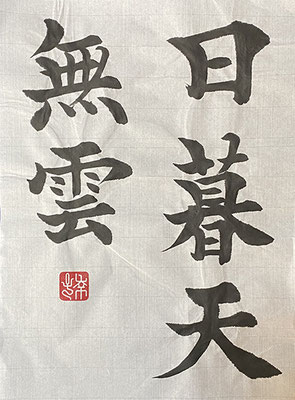 日暮天
無雲